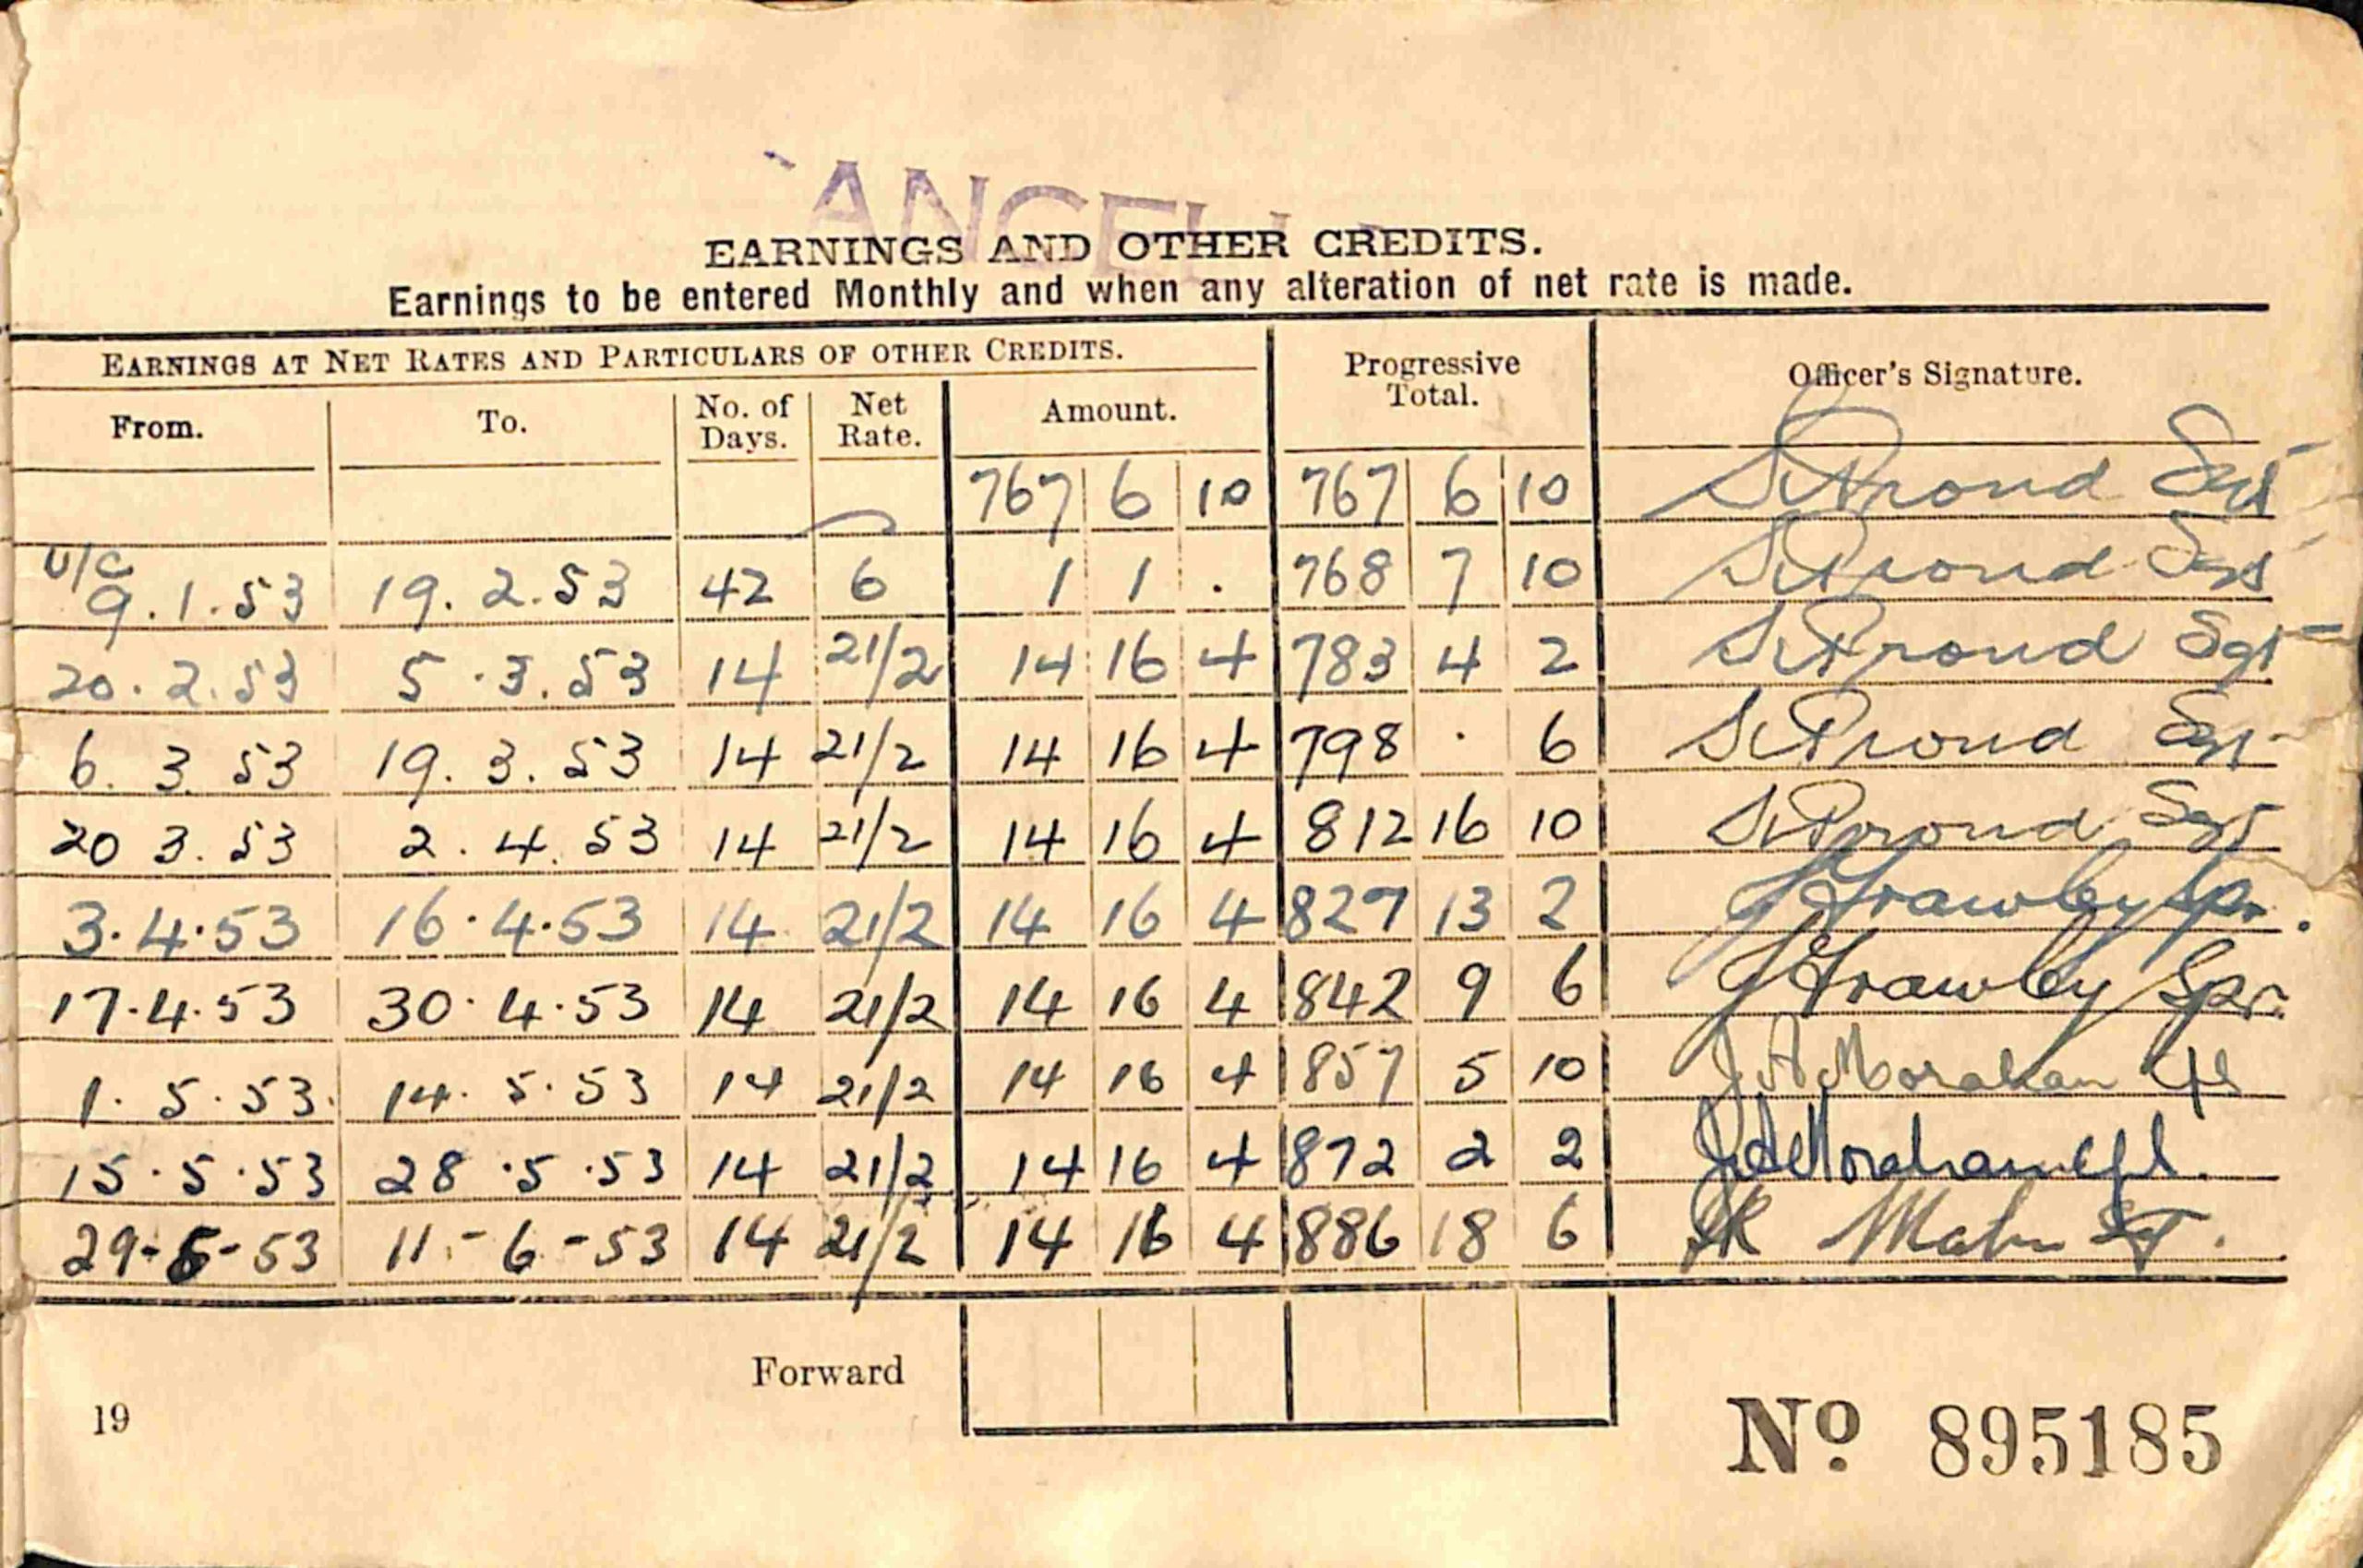 ANCELL
EARNINGS AND OTHER CREDITS.
Earnings to be entered Monthly and when any alteration of net rate is made.
EARNINGS AT NET RATES AND PARTICULARS OF OTHER CREDITS. Progressive Total. Officer's Signature.
From. To. No. of Days. Net Rate. Amount.
767 6 10 767 6 10 Proud Sgt
U/C 9.1.53 19.2.53 42 6 1 1 . 768 7 10 Proud Sgt
20.2.53 5.3.53 14 21/2 14 16 4 783 4 2 Proud Sgt
6.3.53 19.3.53 14 21/2 14 16 4 798 . 6 Proud Sgt
20 3.53 2.4.53 14 21/2 14 16 4 812 16 10 Proud Sgt
3.4.53 16.4.53 14 21/2 14 16 4 827 13 2 Spr.
17.4.53 30.4.53 14 21/2 14 16 4 842 9 6 Spr.
1.5.53. 14.5.53 14 21/2 14 16 4 857 5 10 J A Morahan Cpl
15.5.53 28.5.53 14 21/2 14 16 4 872 2 2 J A Morahan Cpl.
29-5-53 11-6-53 14 21/2 14 16 4 886 18 6
Forward
19
No 895185